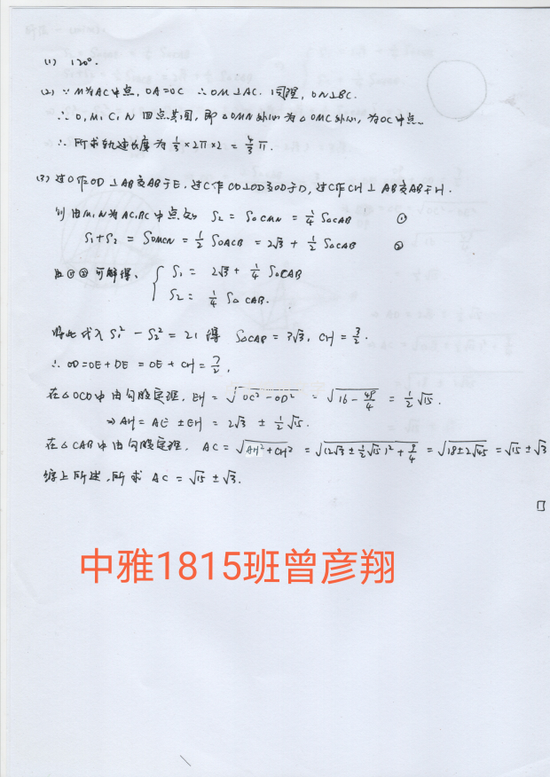 (1) 120°.
(2) ∵ M为AC中点, OA=OC ∴ OM⊥AC. 同理, ON⊥BC.
∴ O, M, C, N 四点共圆, 即△OMN外心为△OMC外心, 为OC中点.
∴ 所求轨迹长度为 1/3×2π×2=4/3π.
(3) 过O作OD⊥AB交AB于E, 过C作CD⊥OD交OD于D, 过C作CH⊥AB交AB于H.
则由M, N为AC, BC中点知 S2=S△CMN=1/4 S△CAB ①
S1+S2=SOMCN=1/2 SOACB=2√3+1/2 S△CAB ②
由①②可解得, { S1=2√3+1/4 S△CAB
S2=1/4 S△CAB.
将此代入 S1²-S2²=21 得 S△CAB=3√3, CH=3/2.
∴ OD=OE+DE=OE+CH=7/2,
在△OCD中由勾股定理, EH=√OC²-OD²=√16-49/4=1/2√15.
⇒ AH=AE±EH=2√3±1/2√15.
在△CAB中由勾股定理, AC=√AH²+CH²=√(2√3±1/2√15)²+9/4=√18±2√45=√15±√3
综上所述, 所求 AC=√15±√3.
□
中雅1815班曾彦翔